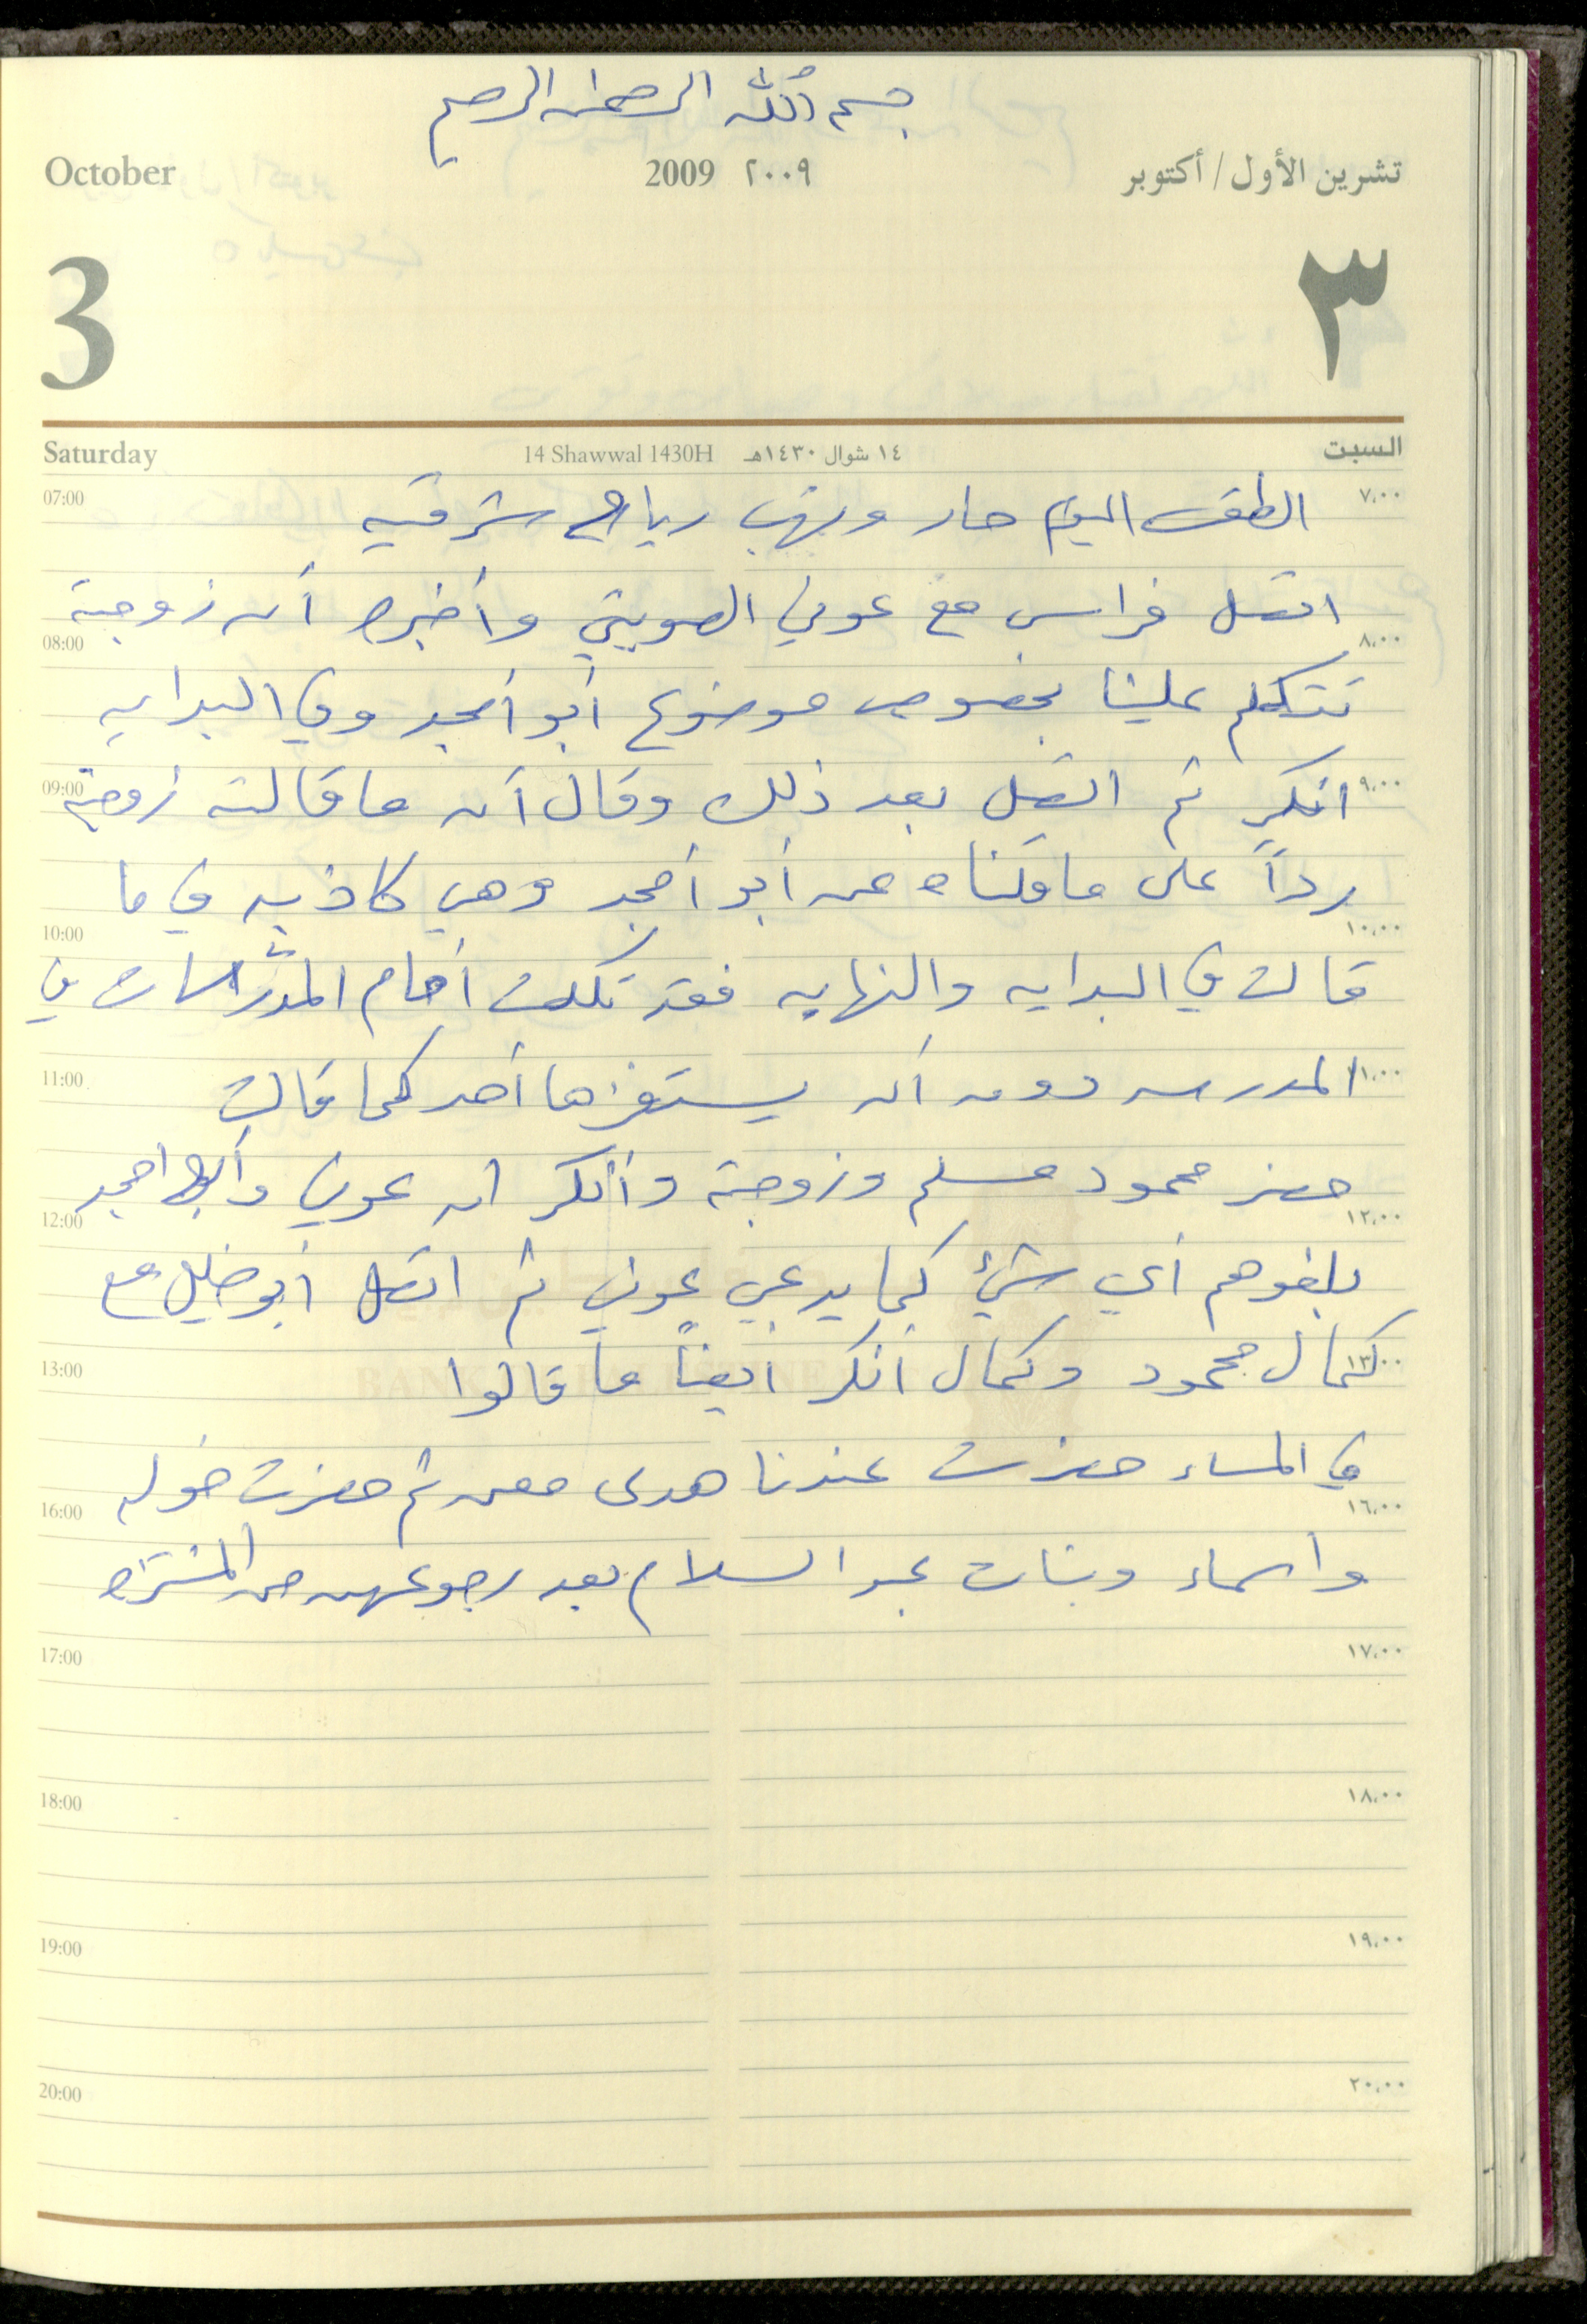 بسم الله الرحمن الرحيم
October 2009 ٢٠٠٩ تشرين الأول / أكتوبر
3 ٣
Saturday 14 Shawwal 1430H ١٤ شوال ١٤٣٠هـ السبت
07:00 الطقس اليوم حار وتهب رياح شرقيه ٧،٠٠
اتصل فراس مع عوني وأخبره أن زوجته
08:00 ٨،٠٠
تتكلم علينا بخصوص موضوع أبو أمجد وفي البدايه
09:00 انكر ثم اتصل بعد ذلك وقال أن ما قالته زوجته ٩،٠٠
رداً على ما قلناه عن أبو أمجد وهي كاذبه في ما
10:00 ١٠،٠٠
قالت في البدايه والنهايه فقد تكلمت أمام المدرسات في
11:00 المدرسه دون أن يستفزها أحد كما قالت ١١،٠٠
حضر محمود مسلم وزوجته وأنكر ان عوني وأبو امجد
12:00 ١٢،٠٠
بلغوهم أي شيئ كما يدعي عوني ثم اتصل أبو خليل مع
13:00 كمال محمود وكمال أنكر أيضاً ما قالوا ١٣،٠٠
BANK OF PALESTINE
في المساء حضرت عندنا هدى معن ثم حضرت خوله
16:00 ١٦،٠٠
واسماء وبنات عبد السلام بعد رجوعهن من المنتزه
17:00 ١٧،٠٠
18:00 ١٨،٠٠
19:00 ١٩،٠٠
20:00 ٢٠،٠٠